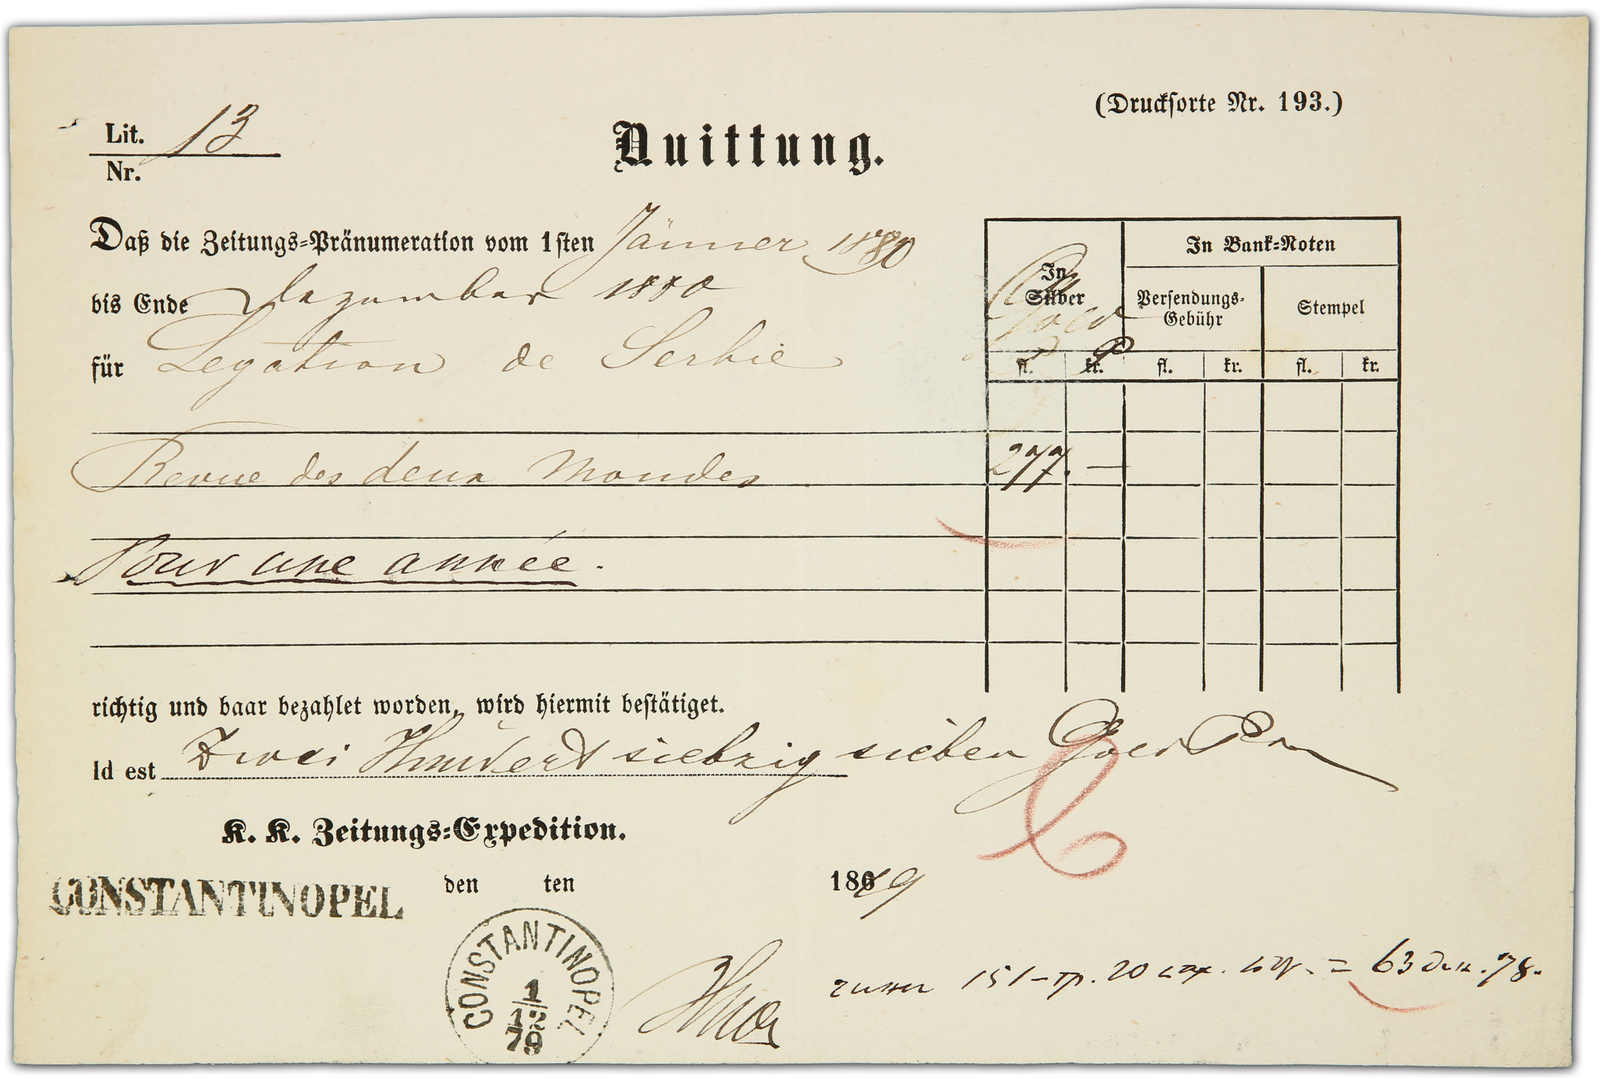 (Druckſorte Nr. 193.)
Lit. 13
Nr.
Quittung.
Daß die Zeitungs-Pränumeration vom 1ſten Jänner 1880
bis Ende Dezember 1880
für Legation de Serbie
Revue des deux Mondes 277. —
Pour une année.
In Silber
Gold
In Bank-Noten
Verſendungs-
Gebühr
Stempel
fl. kr. fl. kr. fl. kr.
richtig und baar bezahlet worden, wird hiermit beſtätiget.
Id est Zwei Hundert siebzig sieben Gold
K. K. Zeitungs-Expedition.
CONSTANTINOPEL den ten 1879
CONSTANTINOPEL
1
12
79
151 20 = 63 78.